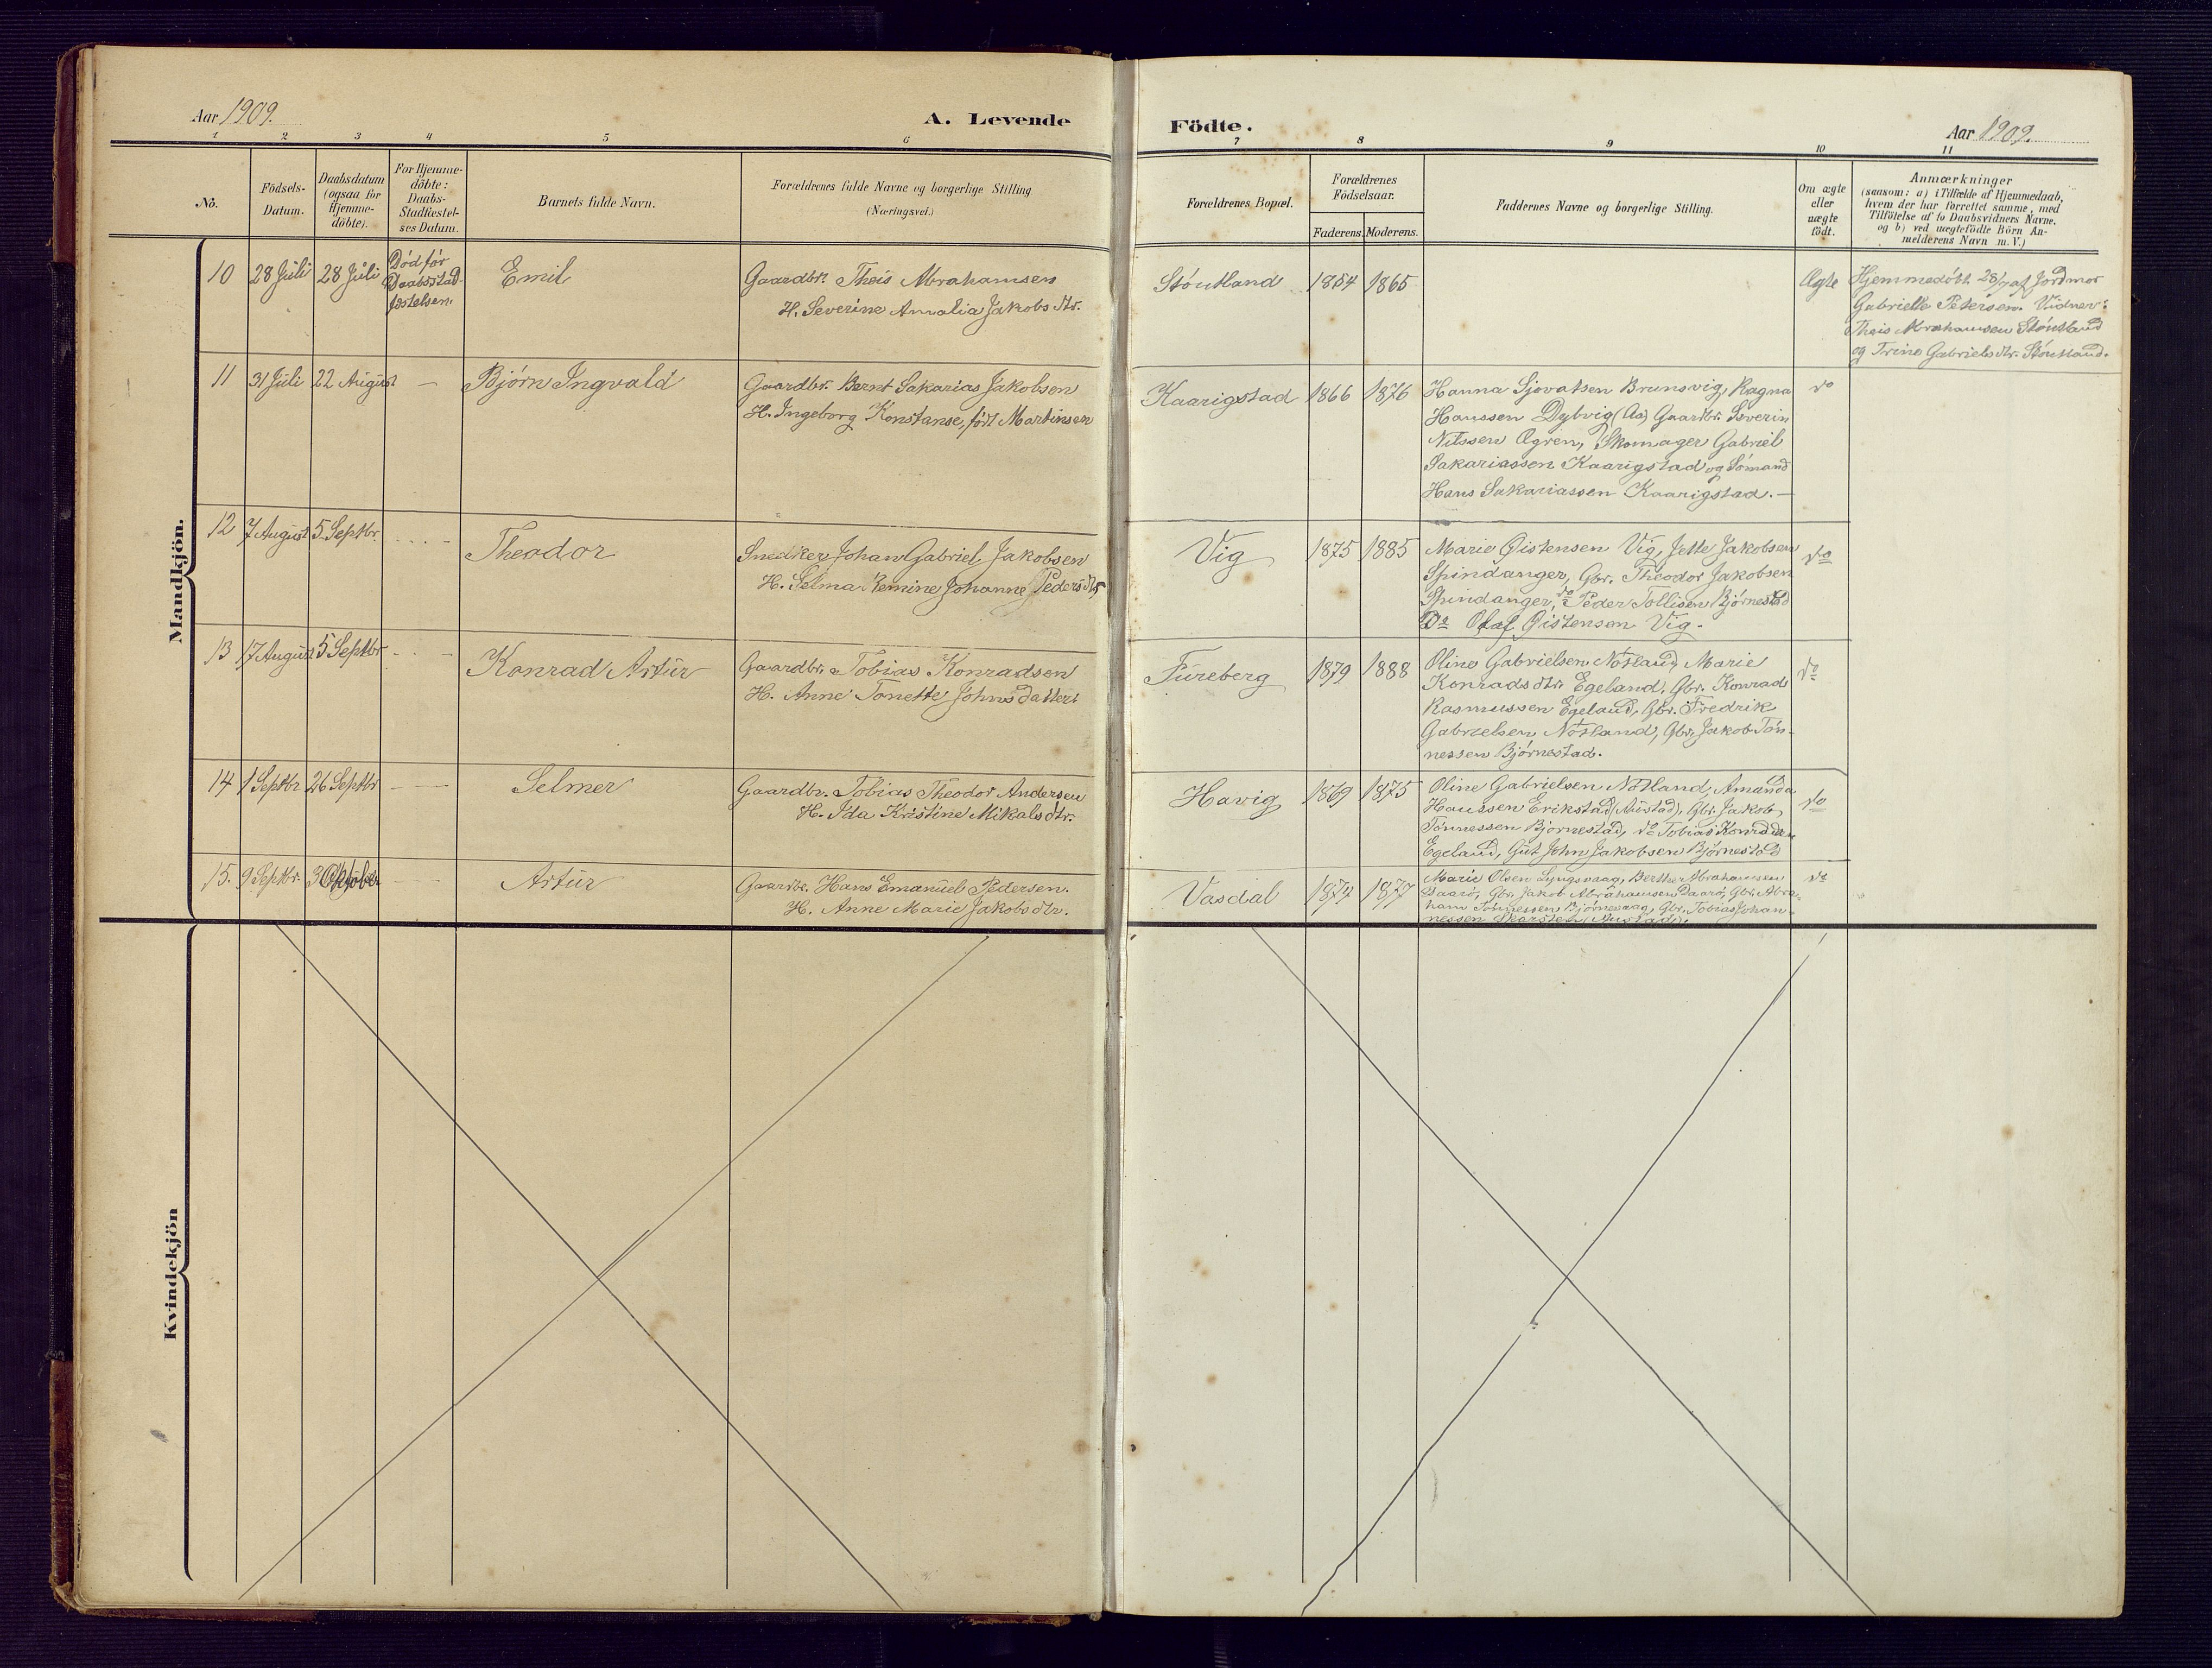 Aar 1909.
A. Levende
Födte.
Aar 1909.
1 2 3 4 5 6 7 8 9 10 11
No.
Födsels-
Datum.
Daabsdatum
(ogsaa for
Hjemme-
döbte).
For Hjemme-
döbte:
Daabs-
Stadfæstel-
ses Datum.
Barnets fulde Navn.
Forældrenes fulde Navne og borgerlige Stilling
(Næringsvei.)
Forældrenes Bopæl.
Forældrenes
Födselsaar.
Faderens. Moderens.
Faddernes Navne og borgerlige Stilling.
Om ægte
eller
uægte
födt.
Anmærkninger
(saasom: a) i Tilfælde af Hjemmedaab,
hvem der har forrettet samme, med
Tilföielse af to Daabsvidners Navne,
og b) ved uægtefödte Börn An-
melderens Navn m. V.)
Mandkjön.
10
28 Juli
28 Juli
Död før
Daabsstad-
fæstelsen.
Emil
Gaardbr. Theis Abrahamsen
H. Severine Amalia Jakobs dtr.
Stöutland
1854
1865
Ægte
Hjemmedöbt 28/7 af Jordmor
Gabrielle Petersen. Vidner:
Theis Abrahamsen Stöutland
og Trine Gabriels dtr. Stöutland.
11
31 Juli
22 August
—
Bjørn Ingvald
Gaardbr. Bernt Sakarias Jakobsen
H. Ingeborg Konstanse, födt Martinsen
Kaarigstad
1866
1876
Hanna Sjovatsen Brunsvig, Ragna
Hanssen Dybvig (Aa) Gaardbr. Severin
Nilssen Øgren, Skomager Gabriel
Sakariassen Kaarigstad og Sömand
Hans Sakariassen Kaarigstad. —
do
12
7 August
5. Septbr.
Theodor
Snedker Johan Gabriel Jakobsen
H. Selma Johanne Peders dtr
Vig
1875
1885
Marie Öistensen Vig, Jette Jakobsen
Spindanger, Gbr. Theodor Jakobsen
Spindanger, do Peder Tollisen Björnestad
Do Olaf Öistensen Vig.
do
13
17 August
5 Septbr
Konrad Artur
Gaardbr. Tobias Konradsen
H. Anne Tonette Johns datter
Fureberg
1879
1888
Oline Gabrielsen Nötland, Marie
Konrads dtr. Egeland, Gbr. Konrad
Rasmussen Egeland, Gbr. Fredrik
Gabrielsen Nötland, Gbr. Jakob Tön-
nessen Björnestad.
do
14
1 Septbr
26 Septbr
Selmer
Gaardbr. Tobias Theodor Andersen
H. Ida Kristine Mikals dtr.
Havig
1869
1875
Oline Gabrielsen Nötland, Amanda
Hanssen Erikstad (Austad), Gbr. Jakob
Tönnessen Björnestad, do Tobias Konradsen
Egeland, Gut John Jakobsen Björnestad
do
15.
9 Septbr.
3 Oktober
Artur
Gaardbr. Hans Emanuel Pedersen.
H. Anne Marie Jakobs dtr.
Vasdal
1874
1877
Marie Olsen Lyngsvaag, Berthe Abrahamsen
Gbr. Jakob Abrahamsen Gbr. Abra-
ham Tönnessen Gbr. Tobias Johan-
nessen (Austad).
do
Kvindekjön